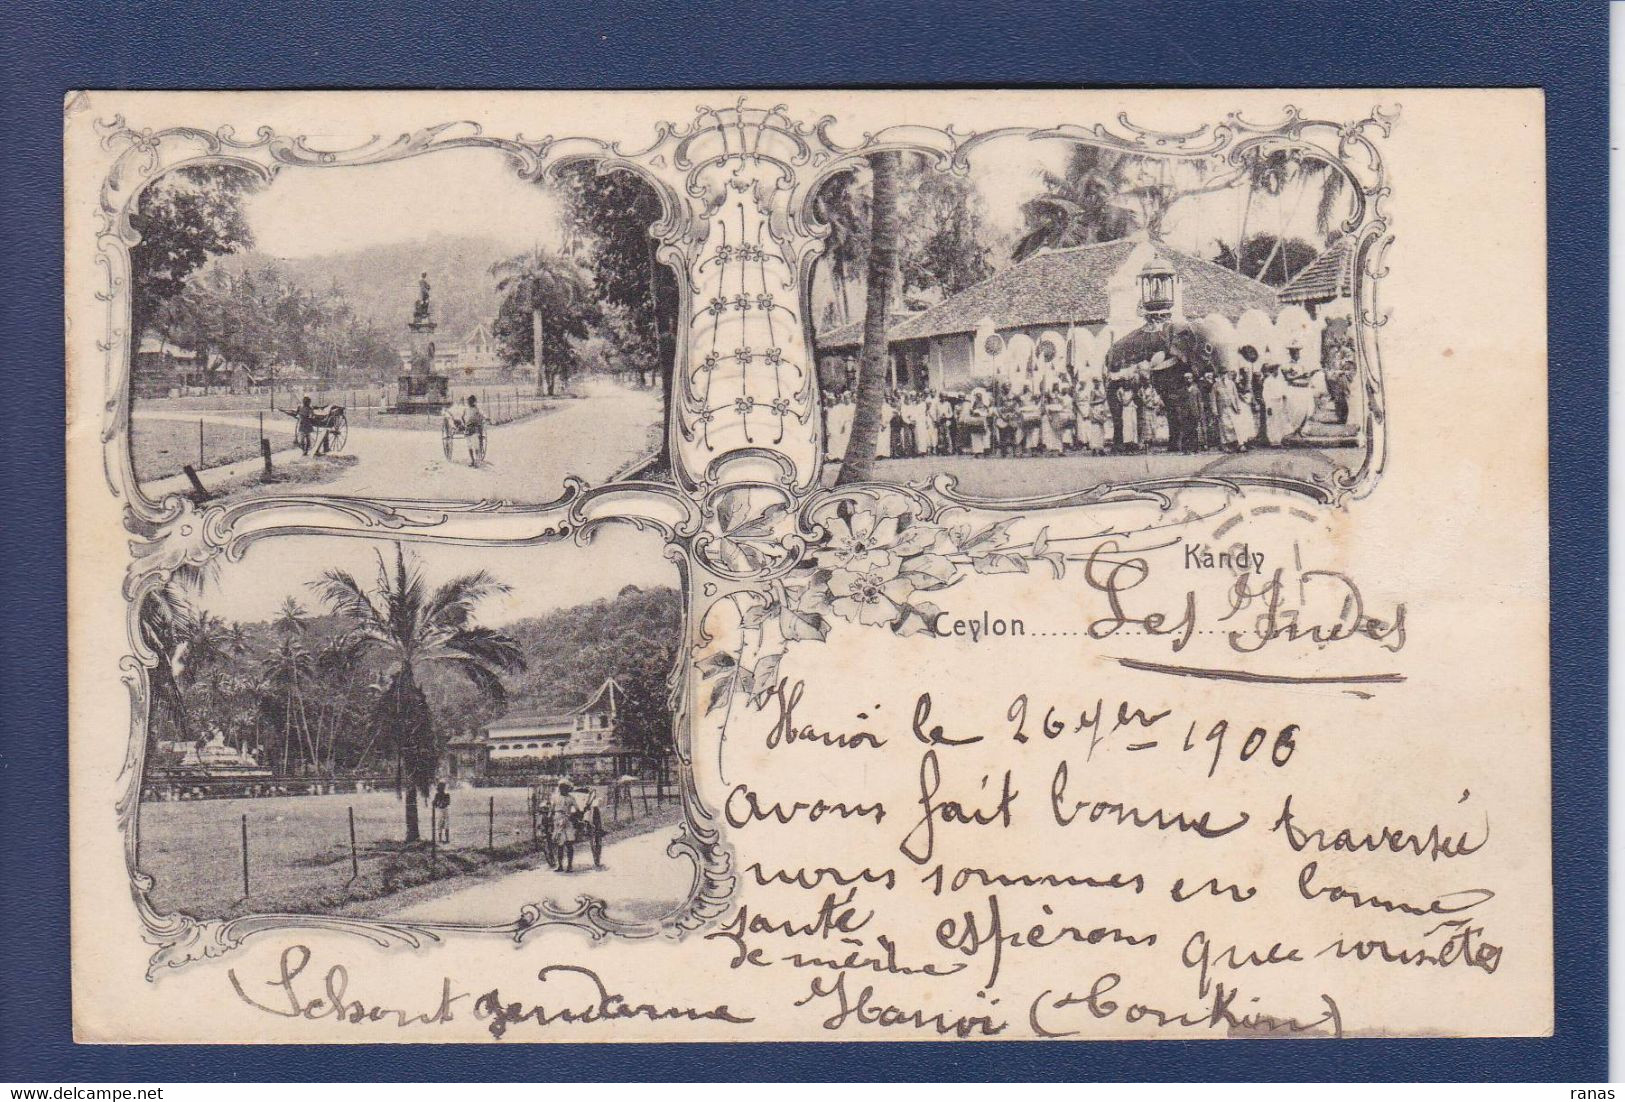 Kandy
Ceylon
Les Indes
Hanoï le 26 yer 1906
avons fait bonne traversée
nous sommes en bonne
santé espérons que vous êtes
de même
Schont gendarme Hanoï (Tonkin)
ranas